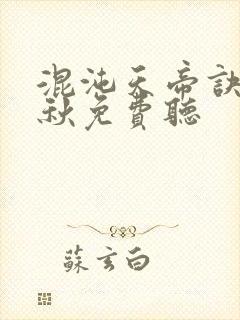 混沌天帝訣
秋免費聽
蘇玄白